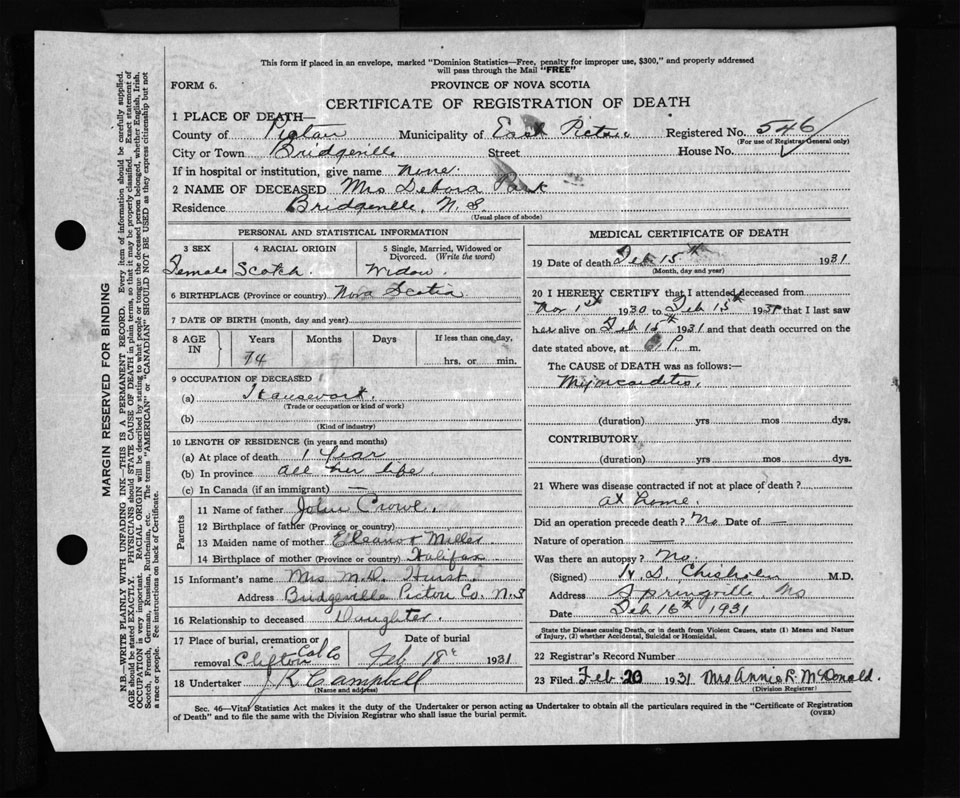 This form if placed in an envelope, marked "Dominion Statistics—Free, penalty for improper use, $300," and properly addressed
will pass through the Mail "FREE"
FORM 6.
PROVINCE OF NOVA SCOTIA
CERTIFICATE OF REGISTRATION OF DEATH
1 PLACE OF DEATH—
County of Pictou Municipality of East Pictou Registered No. 546
(For use of Registrar General only)
City or Town Bridgeville Street House No.
If in hospital or institution, give name None.
2 NAME OF DECEASED Mrs Debora Park
Residence Bridgeville, N. S.
(Usual place of abode)
PERSONAL AND STATISTICAL INFORMATION
3 SEX
Female
4 RACIAL ORIGIN
Scotch.
5 Single, Married, Widowed or
Divorced. (Write the word)
Widow.
6 BIRTHPLACE (Province or country) Nova Scotia
7 DATE OF BIRTH (month, day and year)
8 AGE IN
Years
74
Months
Days
If less than one day,
hrs. or min.
9 OCCUPATION OF DECEASED
(a) Housework.
(Trade or occupation or kind of work)
(b)
(Kind of industry)
10 LENGTH OF RESIDENCE (in years and months)
(a) At place of death 1 year
(b) In province all her life
(c) In Canada (if an immigrant) —
Parents
11 Name of father John Crowe.
12 Birthplace of father (Province or country)
13 Maiden name of mother Eleanor Miller
14 Birthplace of mother (Province or country) Halifax
15 Informant's name Mrs M.D. Hurst.
Address Bridgeville Pictou Co. N.S
16 Relationship to deceased Daughter.
17 Place of burial, cremation or
removal Clifton Col Co
Date of burial
Feb 18th 1931
18 Undertaker J. K. Campbell
(Name and address)
MEDICAL CERTIFICATE OF DEATH
19 Date of death Feb 15th 1931
(Month, day and year)
20 I HEREBY CERTIFY that I attended deceased from
Nov 1st 1930 to Feb 15th 1931 that I last saw
her alive on Feb 15th 1931 and that death occurred on the
date stated above, at P. m.
The CAUSE OF DEATH was as follows:—
Myocarditis.
(duration) yrs mos dys.
CONTRIBUTORY
(duration) yrs mos dys.
21 Where was disease contracted if not at place of death?
at home.
Did an operation precede death? No Date of —
Nature of operation —
Was there an autopsy? No.
(Signed) H. D. Chisholm M.D.
Address Springville, NS
Date Feb 16th 1931
State the Disease causing Death, or in death from Violent Causes, state (1) Means and Nature
of Injury, (2) whether Accidental, Suicidal or Homicidal.
22 Registrar's Record Number
23 Filed Feb 20 1931 Mrs Annie R. McDonald.
(Division Registrar)
Sec. 46—Vital Statistics Act makes it the duty of the Undertaker or person acting as Undertaker to obtain all the particulars required in the "Certificate of Registration
of Death" and to file the same with the Division Registrar who shall issue the burial permit.
(OVER)
MARGIN RESERVED FOR BINDING
N.B.—WRITE PLAINLY WITH UNFADING INK—THIS IS A PERMANENT RECORD. Every item of information should be carefully supplied.
AGE should be stated EXACTLY. PHYSICIANS should STATE CAUSE OF DEATH in plain terms, so that it may be properly classified. Exact statement of
OCCUPATION is very important. RACIAL ORIGIN will be described by stating to what people or tongue the deceased person belonged, whether English, Irish,
Scotch, French, German, Russian, Ruthenian, etc. The terms "AMERICAN" or "CANADIAN" SHOULD NOT BE USED as they express citizenship but not
a race or people. See instructions on back of Certificate.